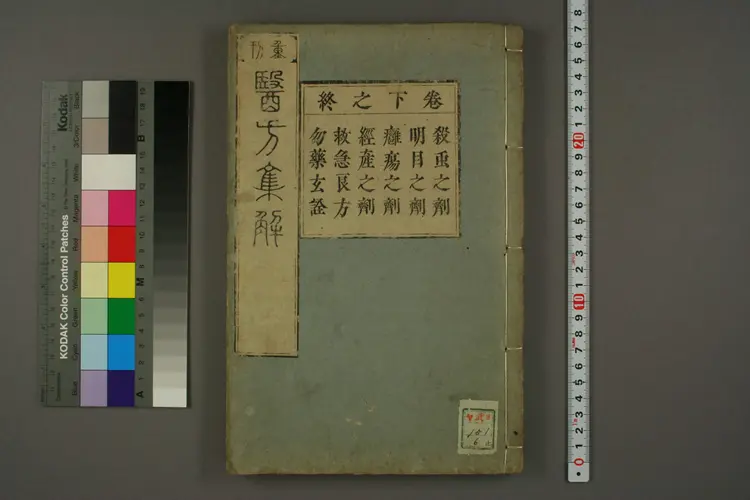 重刊
醫方集解
卷下之終
殺虫之劑
明目之劑
癰瘍之劑
經產之劑
救急良方
勿藥玄詮
KODAK Color Control Patches
Kodak
Blue
Cyan
Green
Yellow
Red
Magenta
White
3/Color
Black
A 1 2 3 4 5 6 M 8 9 10 11 12 13 14 15 B 17 18 19
0 1 2 3 4 5 6 7 8 9 10 1 2 3 4 5 6 7 8 9 20 1 2 3 4 5 6 7 8